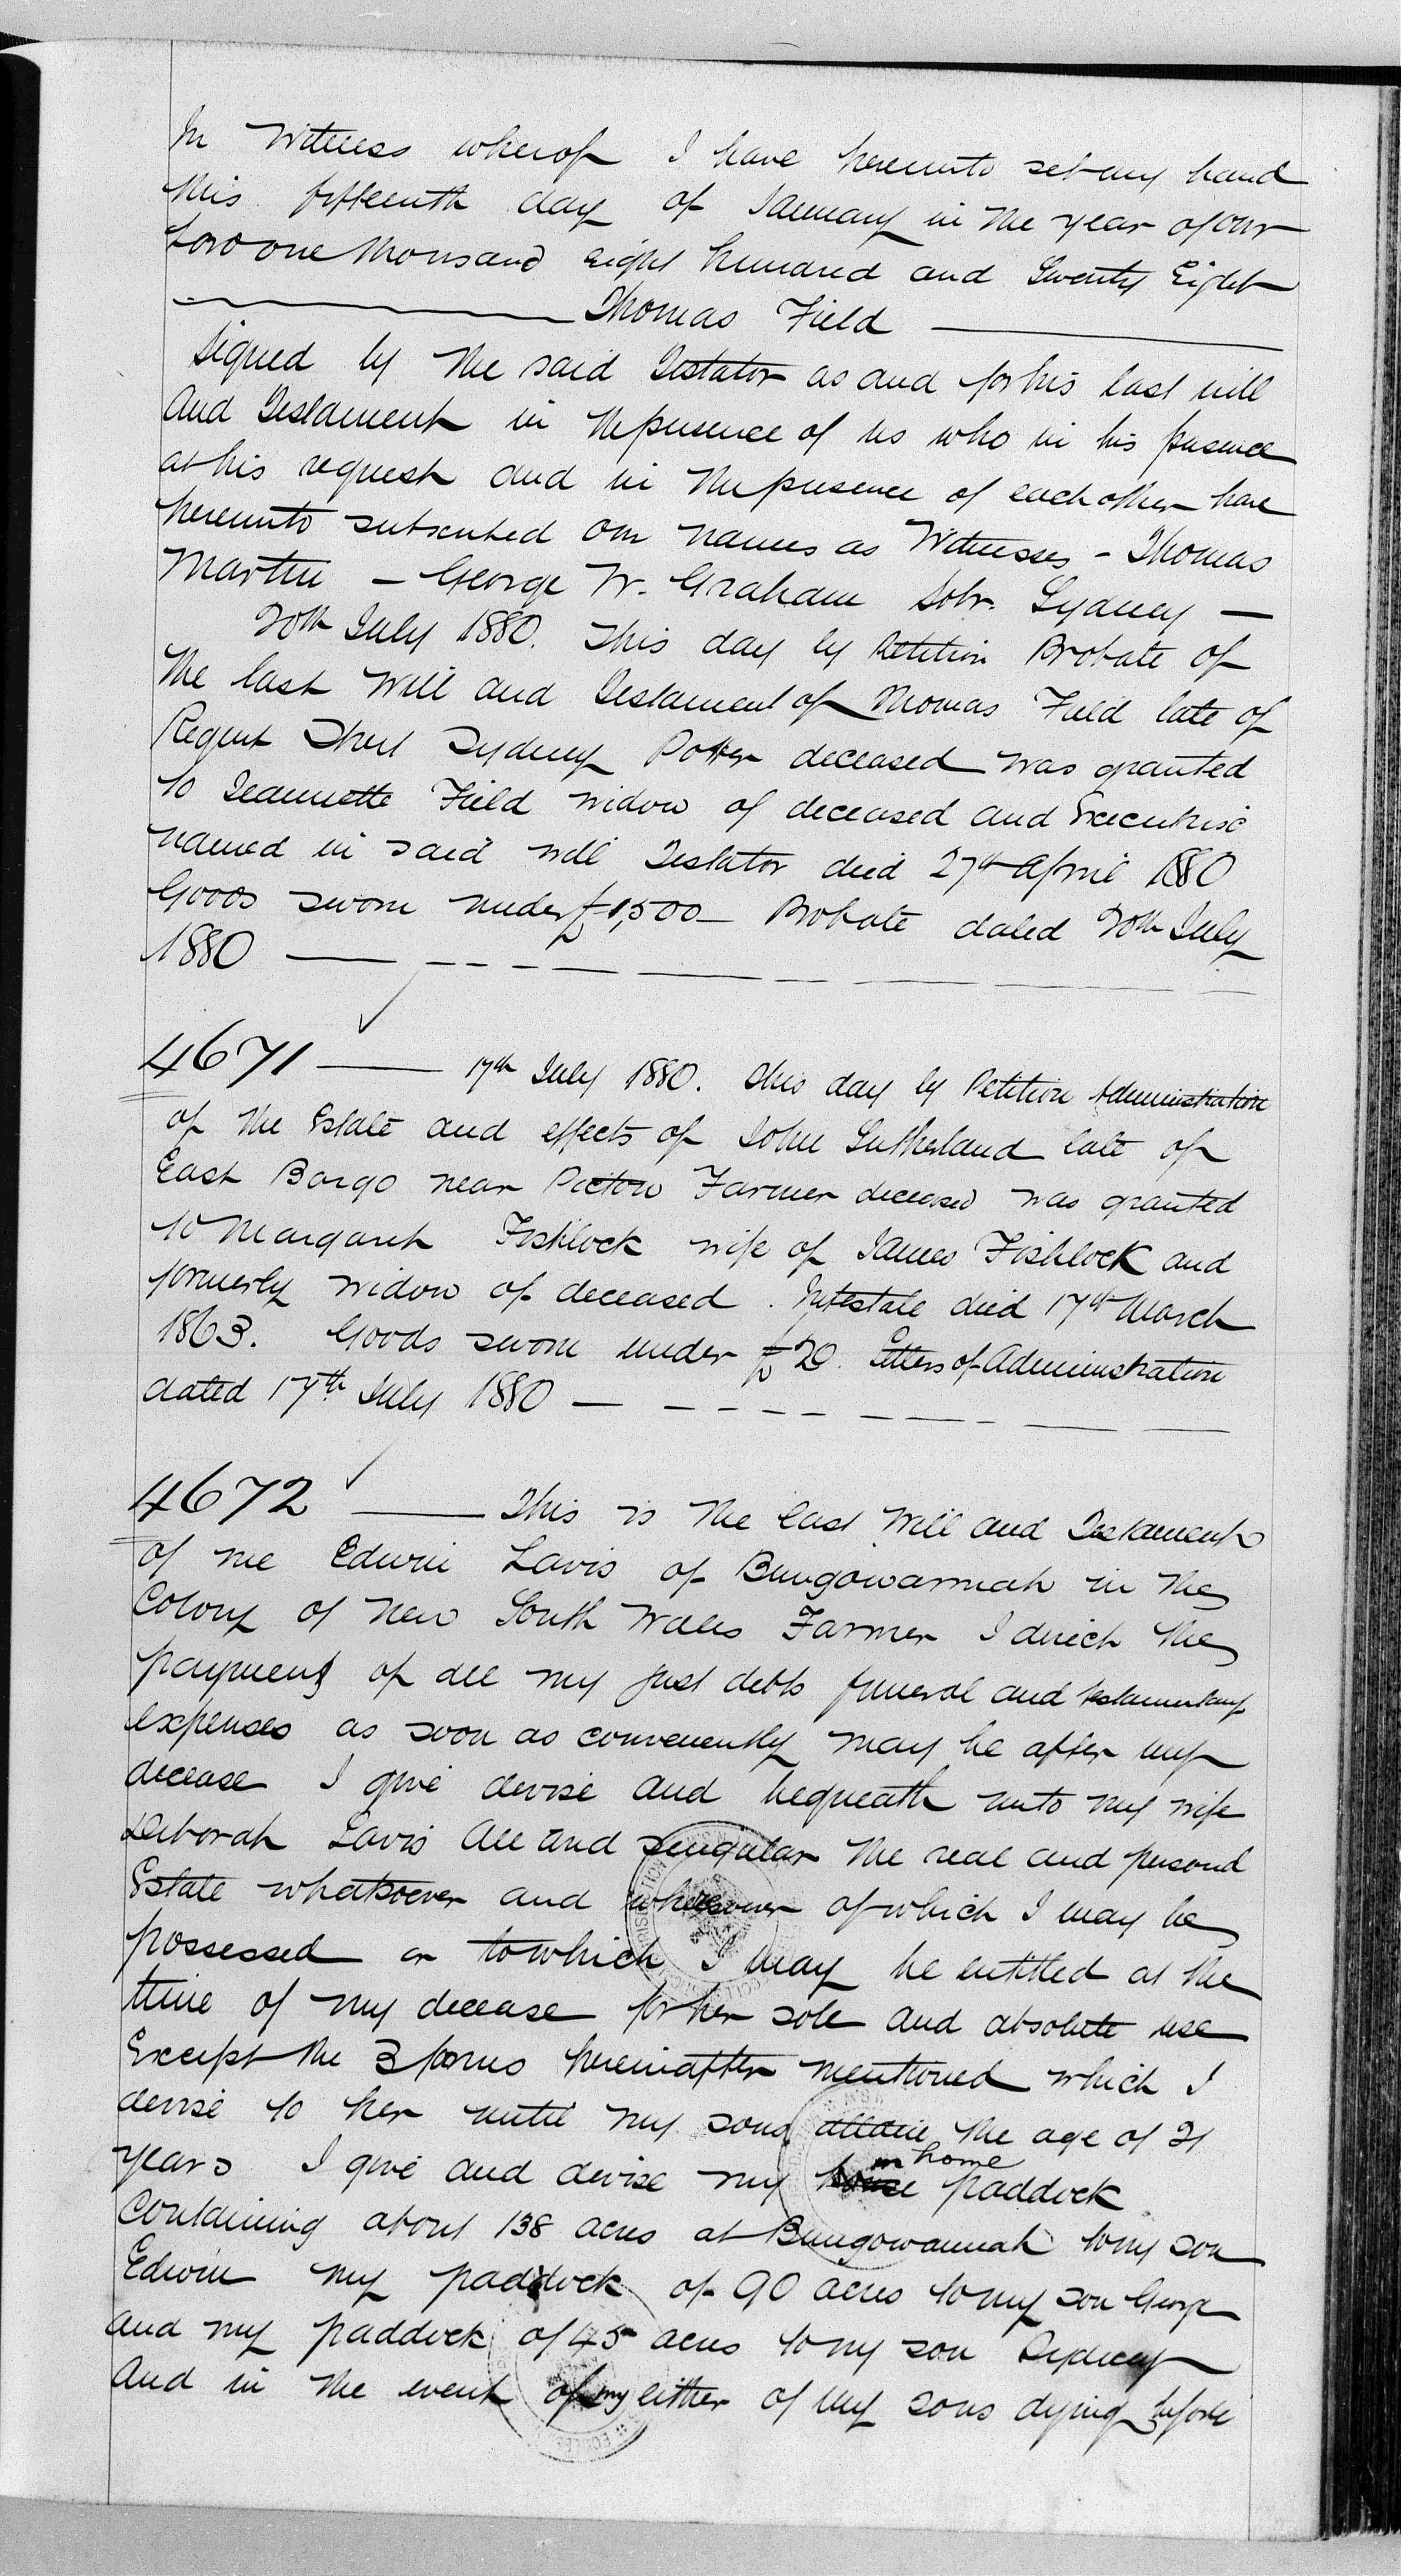 In Witness whereof I have hereunto set my hand
this fifteenth day of January in the year of our
Lord one thousand eight hundred and Seventy Eight
Thomas Field
Signed by the said Testator as and for his last will
and Testament in the presence of us who in his presence
at his request and in the presence of each other have
hereunto subscribed our names as Witnesses - Thomas
Martin - George W. Graham Solr. Sydney -
20th July 1880. This day by Petition Probate of
the last Will and Testament of Thomas Field late of
Regent Street Sydney Potter deceased was granted
to Jeannette Field widow of deceased and Executrix
named in said will Testator died 27th April 1880
Goods sworn under £1,500 - Probate dated 20th July
1880
4671 17th July 1880. This day by Petition Administration
of the Estate and effects of John Sutherland late of
East Bargo near Picton Farmer deceased was granted
to Margaret Fishlock wife of James Fishlock and
formerly widow of deceased. Intestate died 17th March
1863. Goods sworn under £20. Letters of Administration
dated 17th July 1880
4672 This is the last Will and Testament
of me Edwin Lavis of Bungowannah in the
Colony of New South Wales Farmer I direct the
payment of all my just debts funeral and testamentary
expenses as soon as conveniently may be after my
decease I give devise and bequeath unto my wife
Deborah Lavis All and singular the real and personal
Estate whatsoever and wheresoever of which I may be
possessed or to which I may be entitled at the
time of my decease for her sole and absolute use
Except the 3 farms hereinafter mentioned which I
devise to her until my sons attain the age of 21
home
years I give and devise my paddock
containing about 138 acres at Bungowannah to my son
Edwin my paddock of 90 acres to my son George
and my paddock of 45 acres to my son Sydney
And in the event of my either of my sons dying before